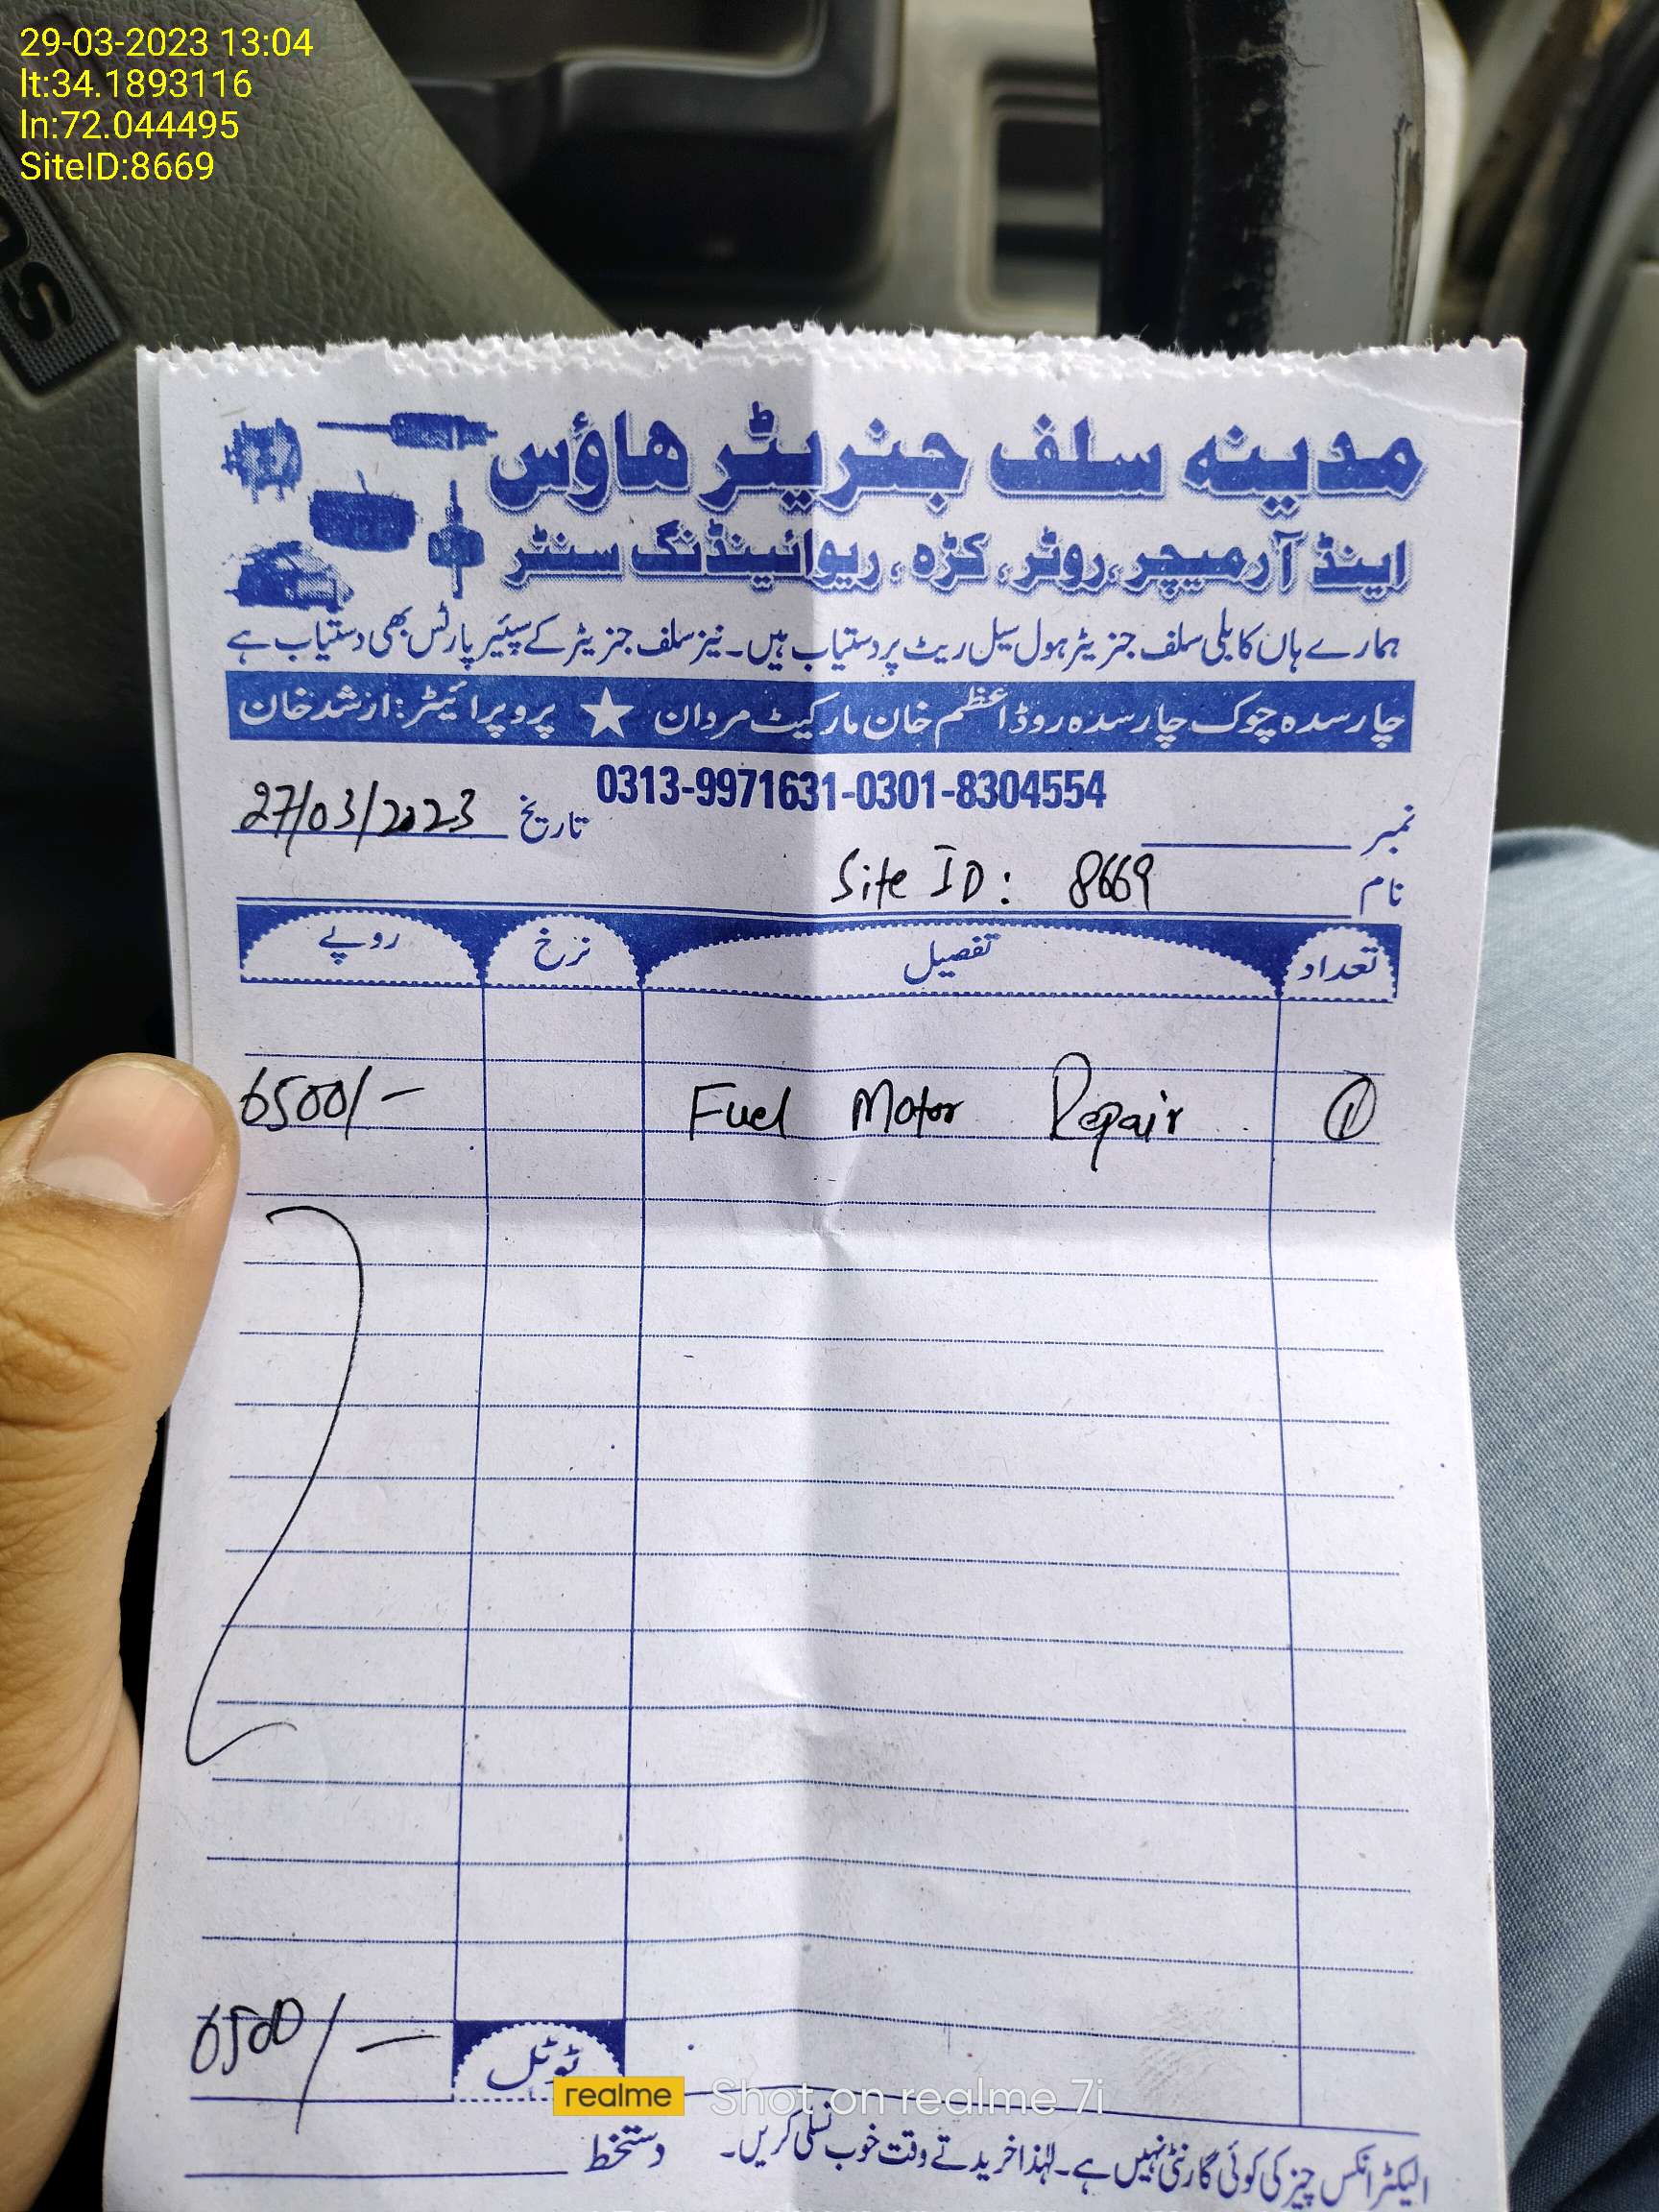 29-03-2023 13:04
lt:34.1893116
ln:72.044495
SiteID:8669
مدینہ سلف جنریٹر ھاؤس
اینڈ آرمیچر، روٹر، کڑہ، ریوائینڈنگ سنٹر
ہمارے ہاں کابلی سلف جنریٹر ہول سیل ریٹ پر دستیاب ہیں۔ نیز سلف جنریٹر کے سپیئر پارٹس بھی دستیاب ہے
چارسدہ چوک چارسدہ روڈ اعظم خان مارکیٹ مردان ★ پروپرائیٹر: ارشد خان
0313-9971631-0301-8304554
نمبر تاریخ 27/03/2023
نام Site ID: 8669
تعداد تفصیل نرخ روپے
1 Fuel Motor Repair 6500/-
ٹوٹل 6500/-
realme Shot on realme 7i
الیکٹرانکس چیز کی کوئی گارنٹی نہیں ہے۔ لہٰذا خریدتے وقت خوب تسلی کریں۔ دستخط